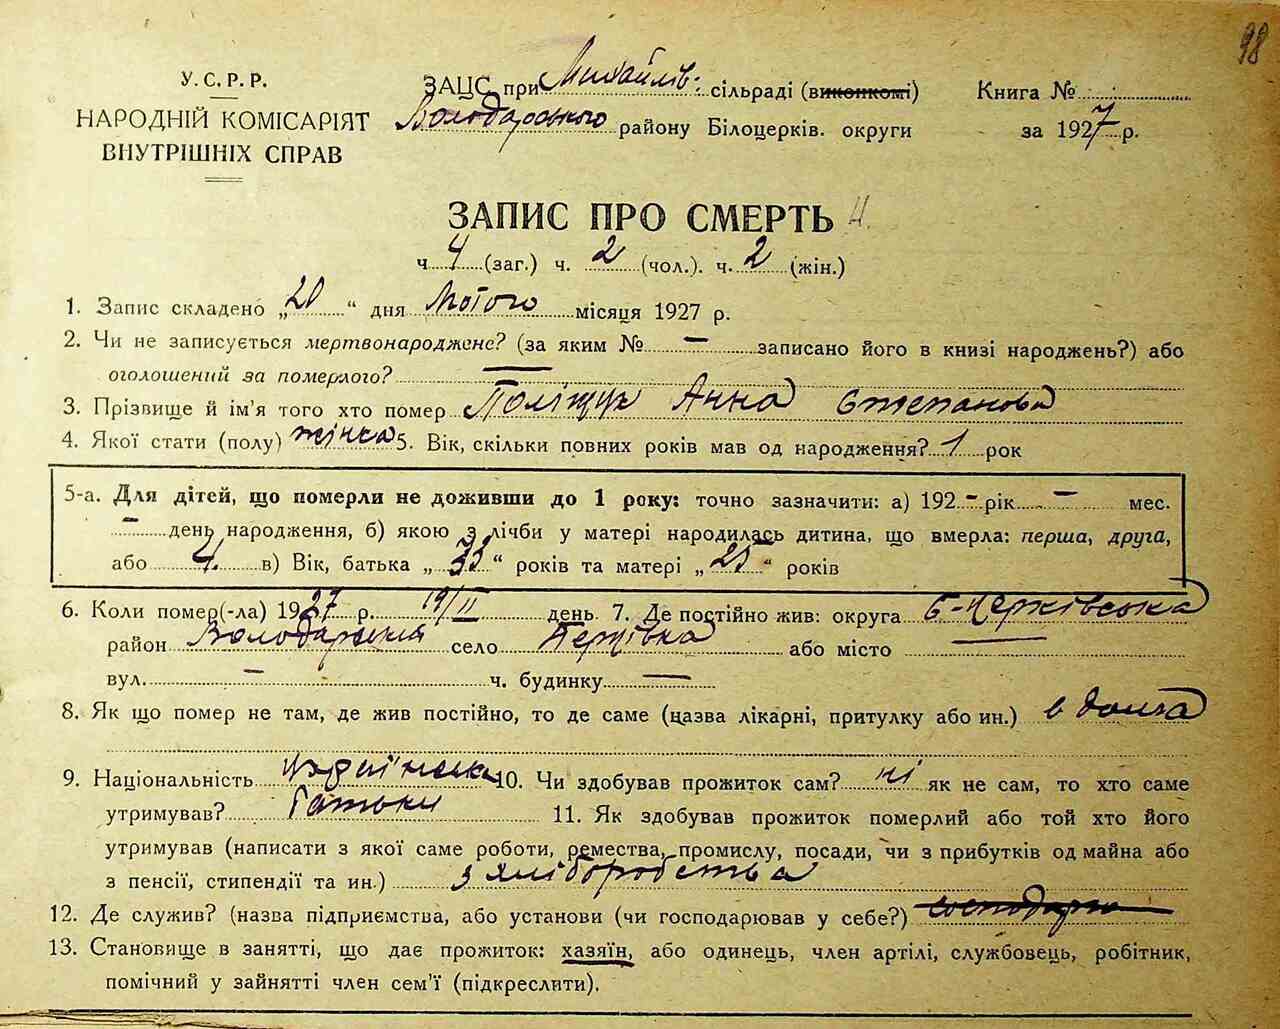 98
У.С.Р.Р.
НАРОДНІЙ КОМІСАРІЯТ
ВНУТРІШНІХ СПРАВ
ЗАЦС при Михайлів: сільраді (виконкомі)
Володарського району Білоцерків. округи
Книга №
за 1927 р.
ЗАПИС ПРО СМЕРТЬ 4.
ч 4 (заг.) ч. 2 (чол.). ч. 2 (жін.)
1. Запис складено „20“ дня Лютого місяця 1927 р.
2. Чи не записується мертвонароджене? (за яким № — записано його в книзі народжень?) або
оголошений за померлого? —
3. Прізвище й ім'я того хто помер Поліщук Анна Степанова
4. Якої стати (полу) жінка 5. Вік, скільки повних років мав од народження? 1 рок
5-а. Для дітей, що померли не доживши до 1 року: точно зазначити: а) 192 - рік — мес.
— день народження, б) якою з лічби у матері народилась дитина, що вмерла: перша, друга,
або 4. в) Вік, батька „33“ років та матері „25“ років
6. Коли помер(-ла) 1927 р. 19/II день 7. Де постійно жив: округа Б-Церківська
район Володарський село Петрівка або місто —
вул. — ч. будинку —
8. Як що помер не там, де жив постійно, то де саме (назва лікарні, притулку або ин.) в дома
9. Національність українська 10. Чи здобував прожиток сам? ні як не сам, то хто саме
утримував? Батьки 11. Як здобував прожиток померлий або той хто його
утримував (написати з якої саме роботи, ремества, промислу, посади, чи з прибутків од майна або
з пенсії, стипендії та ин.) з хліборобства
12. Де служив? (назва підприємства, або установи (чи господарював у себе?)
13. Становище в занятті, що дає прожиток: хазяїн, або одинець, член артілі, службовець, робітник,
помічний у зайнятті член сем'ї (підкреслити).